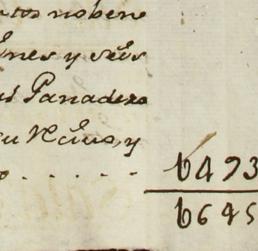 ntos nobene
nes y seis
Panadero
su Reciuo, y
o . . . . . 6493
6645